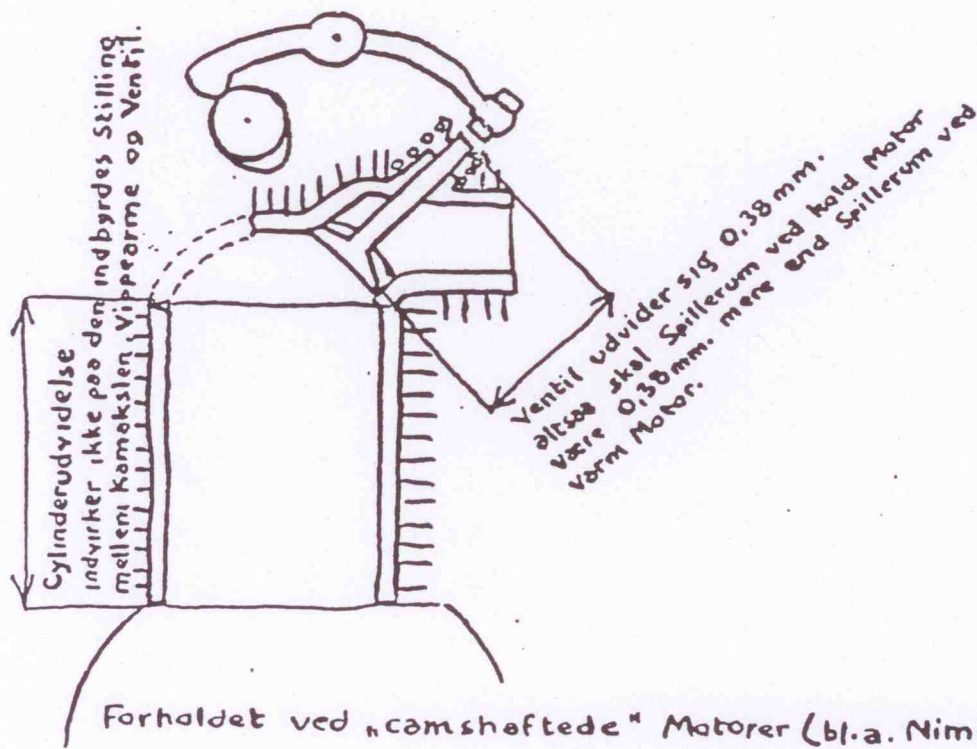 Cylinderudvidelse
indvirker ikke paa den indbyrdes Stilling
mellem Kamakslen Vippearme og Ventil.
Ventil udvider sig 0,38 mm.
altsaa skal Spillerum ved kold Motor
være 0,38 mm. mere end Spillerum ved
varm Motor.
Forholdet ved „camshaftede" Motorer (bl.a. Nim